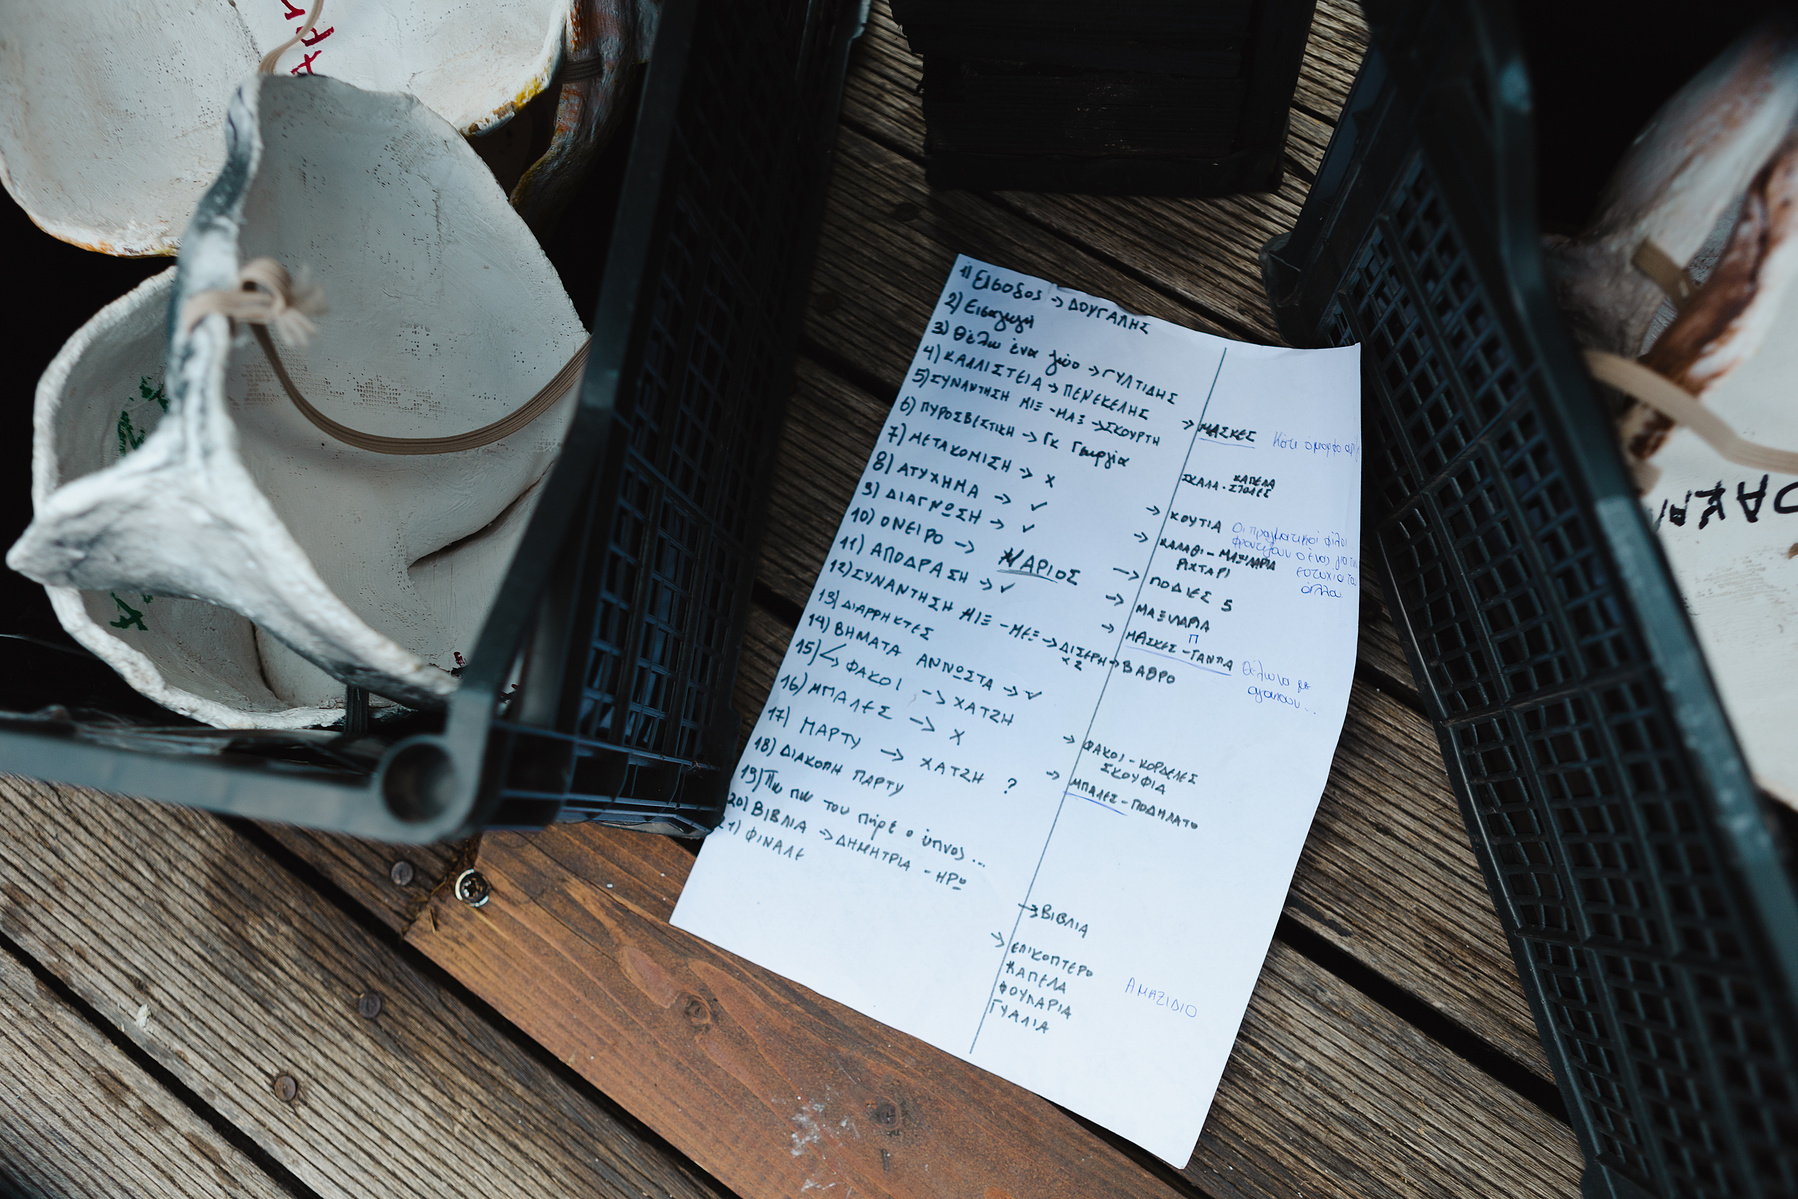 1) Είσοδος → ΔΟΥΓΑΛΗΣ
2) Εισαγωγή
3) Θέλω ένα ζώο → ΓΥΛΤΙΔΗΣ
4) ΚΑΛΛΙΣΤΕΙΑ → ΠΕΝΕΚΕΛΗΣ
5) ΣΥΝΑΝΤΗΣΗ ΜΙΞ - ΜΑΞ → ΣΚΟΥΡΤΗ
6) ΠΥΡΟΣΒΕΣΤΙΚΗ → Γκ Γεωργία
7) ΜΕΤΑΚΟΜΙΣΗ → X
8) ΑΤΥΧΗΜΑ → ✓
9) ΔΙΑΓΝΩΣΗ → ✓
10) ΟΝΕΙΡΟ → ΜΑΡΙΟΣ
11) ΑΠΟΔΡΑΣΗ → ✓
12) ΣΥΝΑΝΤΗΣΗ ΜΙΞ - ΜΕΞ → ΔΙΣΕΡΗ x2
13) ΔΙΑΡΡΗΚΤΕΣ
14) ΒΗΜΑΤΑ ΑΓΝΩΣΤΑ → ✓
15) ΦΑΚΟΙ → ΧΑΤΖΗ
16) ΜΠΑΛΕΣ → X
17) ΠΑΡΤΥ → ΧΑΤΖΗ ?
18) ΔΙΑΚΟΠΗ ΠΑΡΤΥ
19) Πω πω του πήρε ο ύπνος...
20) ΒΙΒΛΙΑ → ΔΗΜΗΤΡΙΑ - ΗΡΩ
21) ΦΙΝΑΛΕ
→ ΜΑΣΚΕΣ Κάτι όμορφο
ΣΚΑΛΑ - ΣΤΟΛΕΣ
ΚΑΠΕΛΑ
→ ΚΟΥΤΙΑ
Οι πραγματικοί φίλοι
φροντίζουν ο ένας για την
ευτυχία του
άλλου
→ ΚΑΛΑΘΙ - ΜΑΞΙΛΑΡΙΑ
ΡΙΧΤΑΡΙ
→ ΠΟΔΙΕΣ 5
→ ΜΑΞΙΛΑΡΙΑ
→ ΜΑΣΚΕΣ - ΓΑΝΤΙΑ
Θέλω να με
αγαπάω...
→ ΒΑΘΡΟ
→ ΦΑΚΟΙ - ΚΟΡΔΕΛΕΣ
ΣΚΟΥΦΙΑ
→ ΜΠΑΛΕΣ - ΠΟΔΗΛΑΤΟ
→ ΒΙΒΛΙΑ
→ ΕΛΙΚΟΠΤΕΡΟ
ΚΑΠΕΛΑ
ΦΟΥΛΑΡΙΑ
ΓΥΑΛΙΑ
ΑΜΑΞΙΔΙΟ